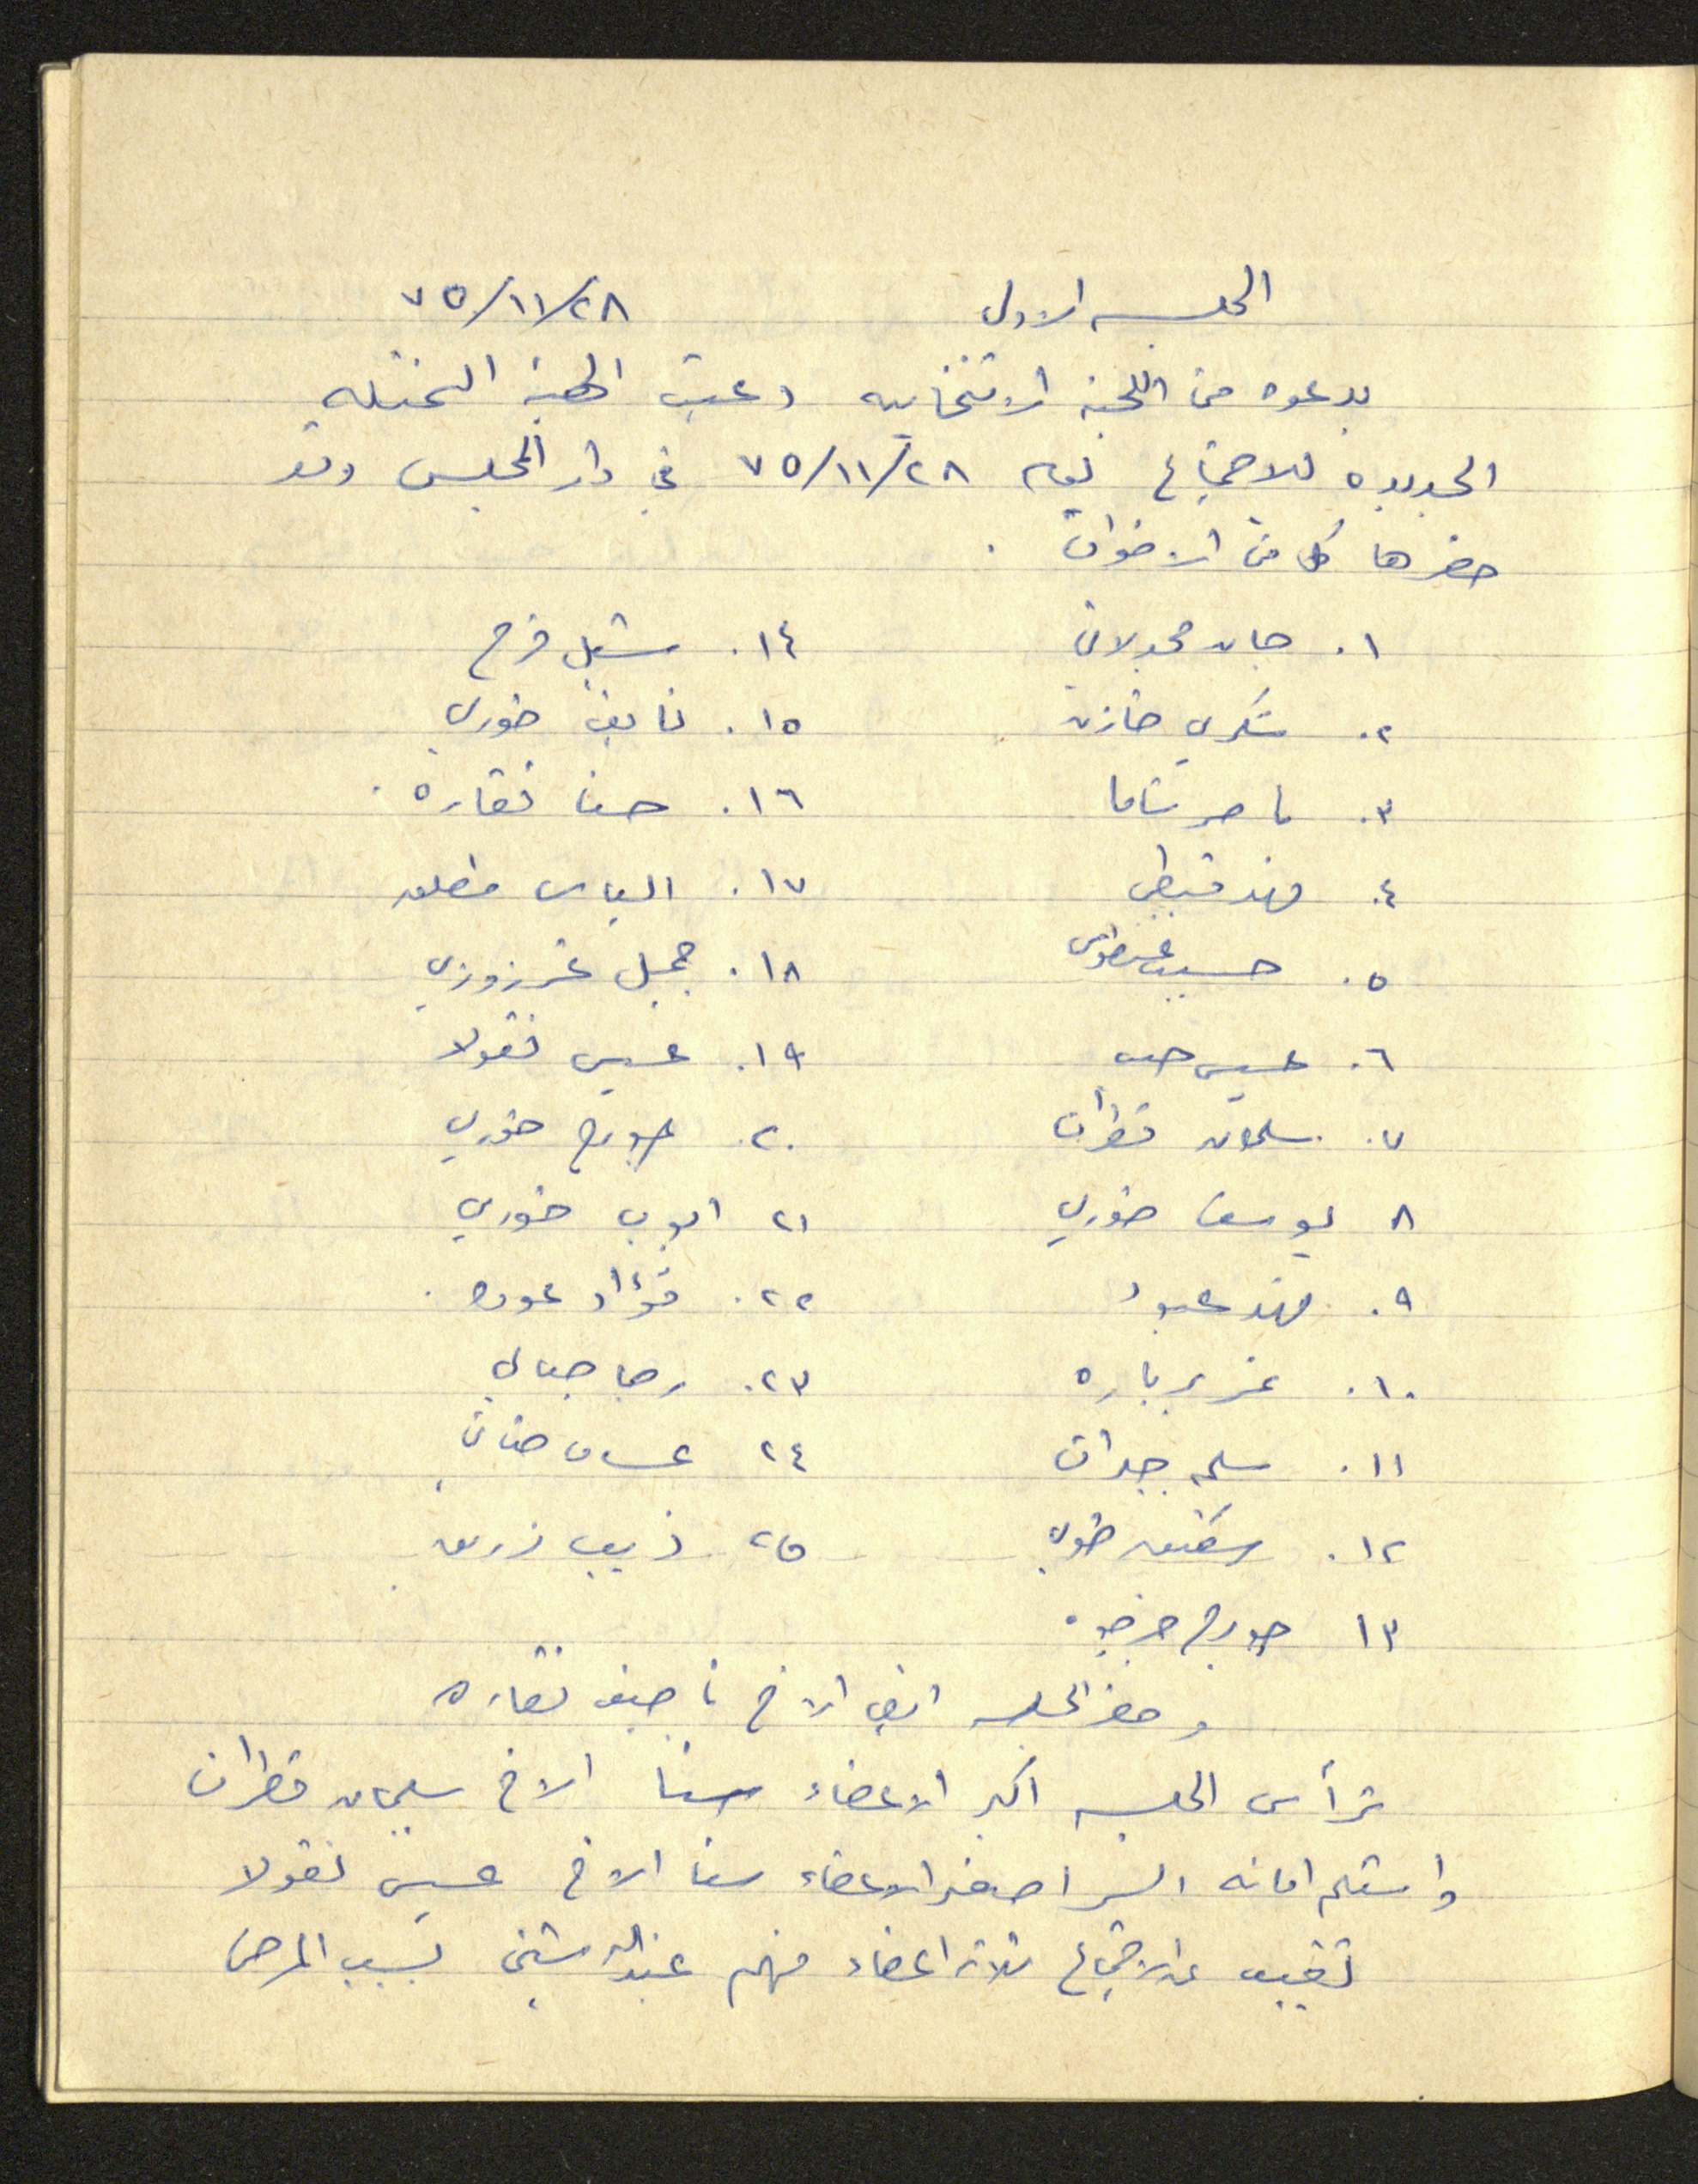 الجلسه الاولى ٧٥/١١/٢٨
بدعوه من اللجنه الانتخابيه دعيت الهيئة الممثله
الجديده للاجتماع يوم ٧٥/١١/٢٨ في دار المجلس وقد
حضرها كل من الاخوان .
١. مجدلاني
٢. شكري خازن
٣. ماهر شاما
٤. فهد قبطي
٥. حسيب
٦. عيسى حب
٧. سليمان قطران
٨ يوسف خوري
٩. فهد عبود
١٠. باره
١١. سليم جبران
١٢. شفيق خوري
١٣ جورج
١٤. شبل فرح
١٥. نايف خوري
١٦. حنا نقاره .
١٧. الياس مطلق
١٨. جميل غرزوزي
١٩. عيسى نقولا
٢٠. جورج خوري
٢١ اديب خوري
٢٢. فؤاد عوده .
٢٣. رجا جبالي
٢٤
٢٥ ذيب زريق
وحضر الجلسه ايضا الاخ ناصيف نقاره
ترأس الجلسه اكبر الاعضاء سنا الاخ سليمان قطران
واستلم امانه السر اصغر الاعضاء سنا الاخ عيسى نقولا
تغيب عن الاجتماع ثلاثه اعضاء منهم عبدالله بسبب المرض